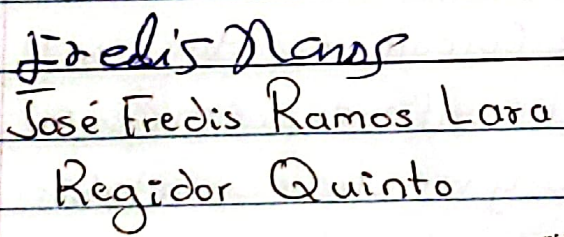 Fredis Ramos
José Fredis Ramos Lara
Regidor Quinto